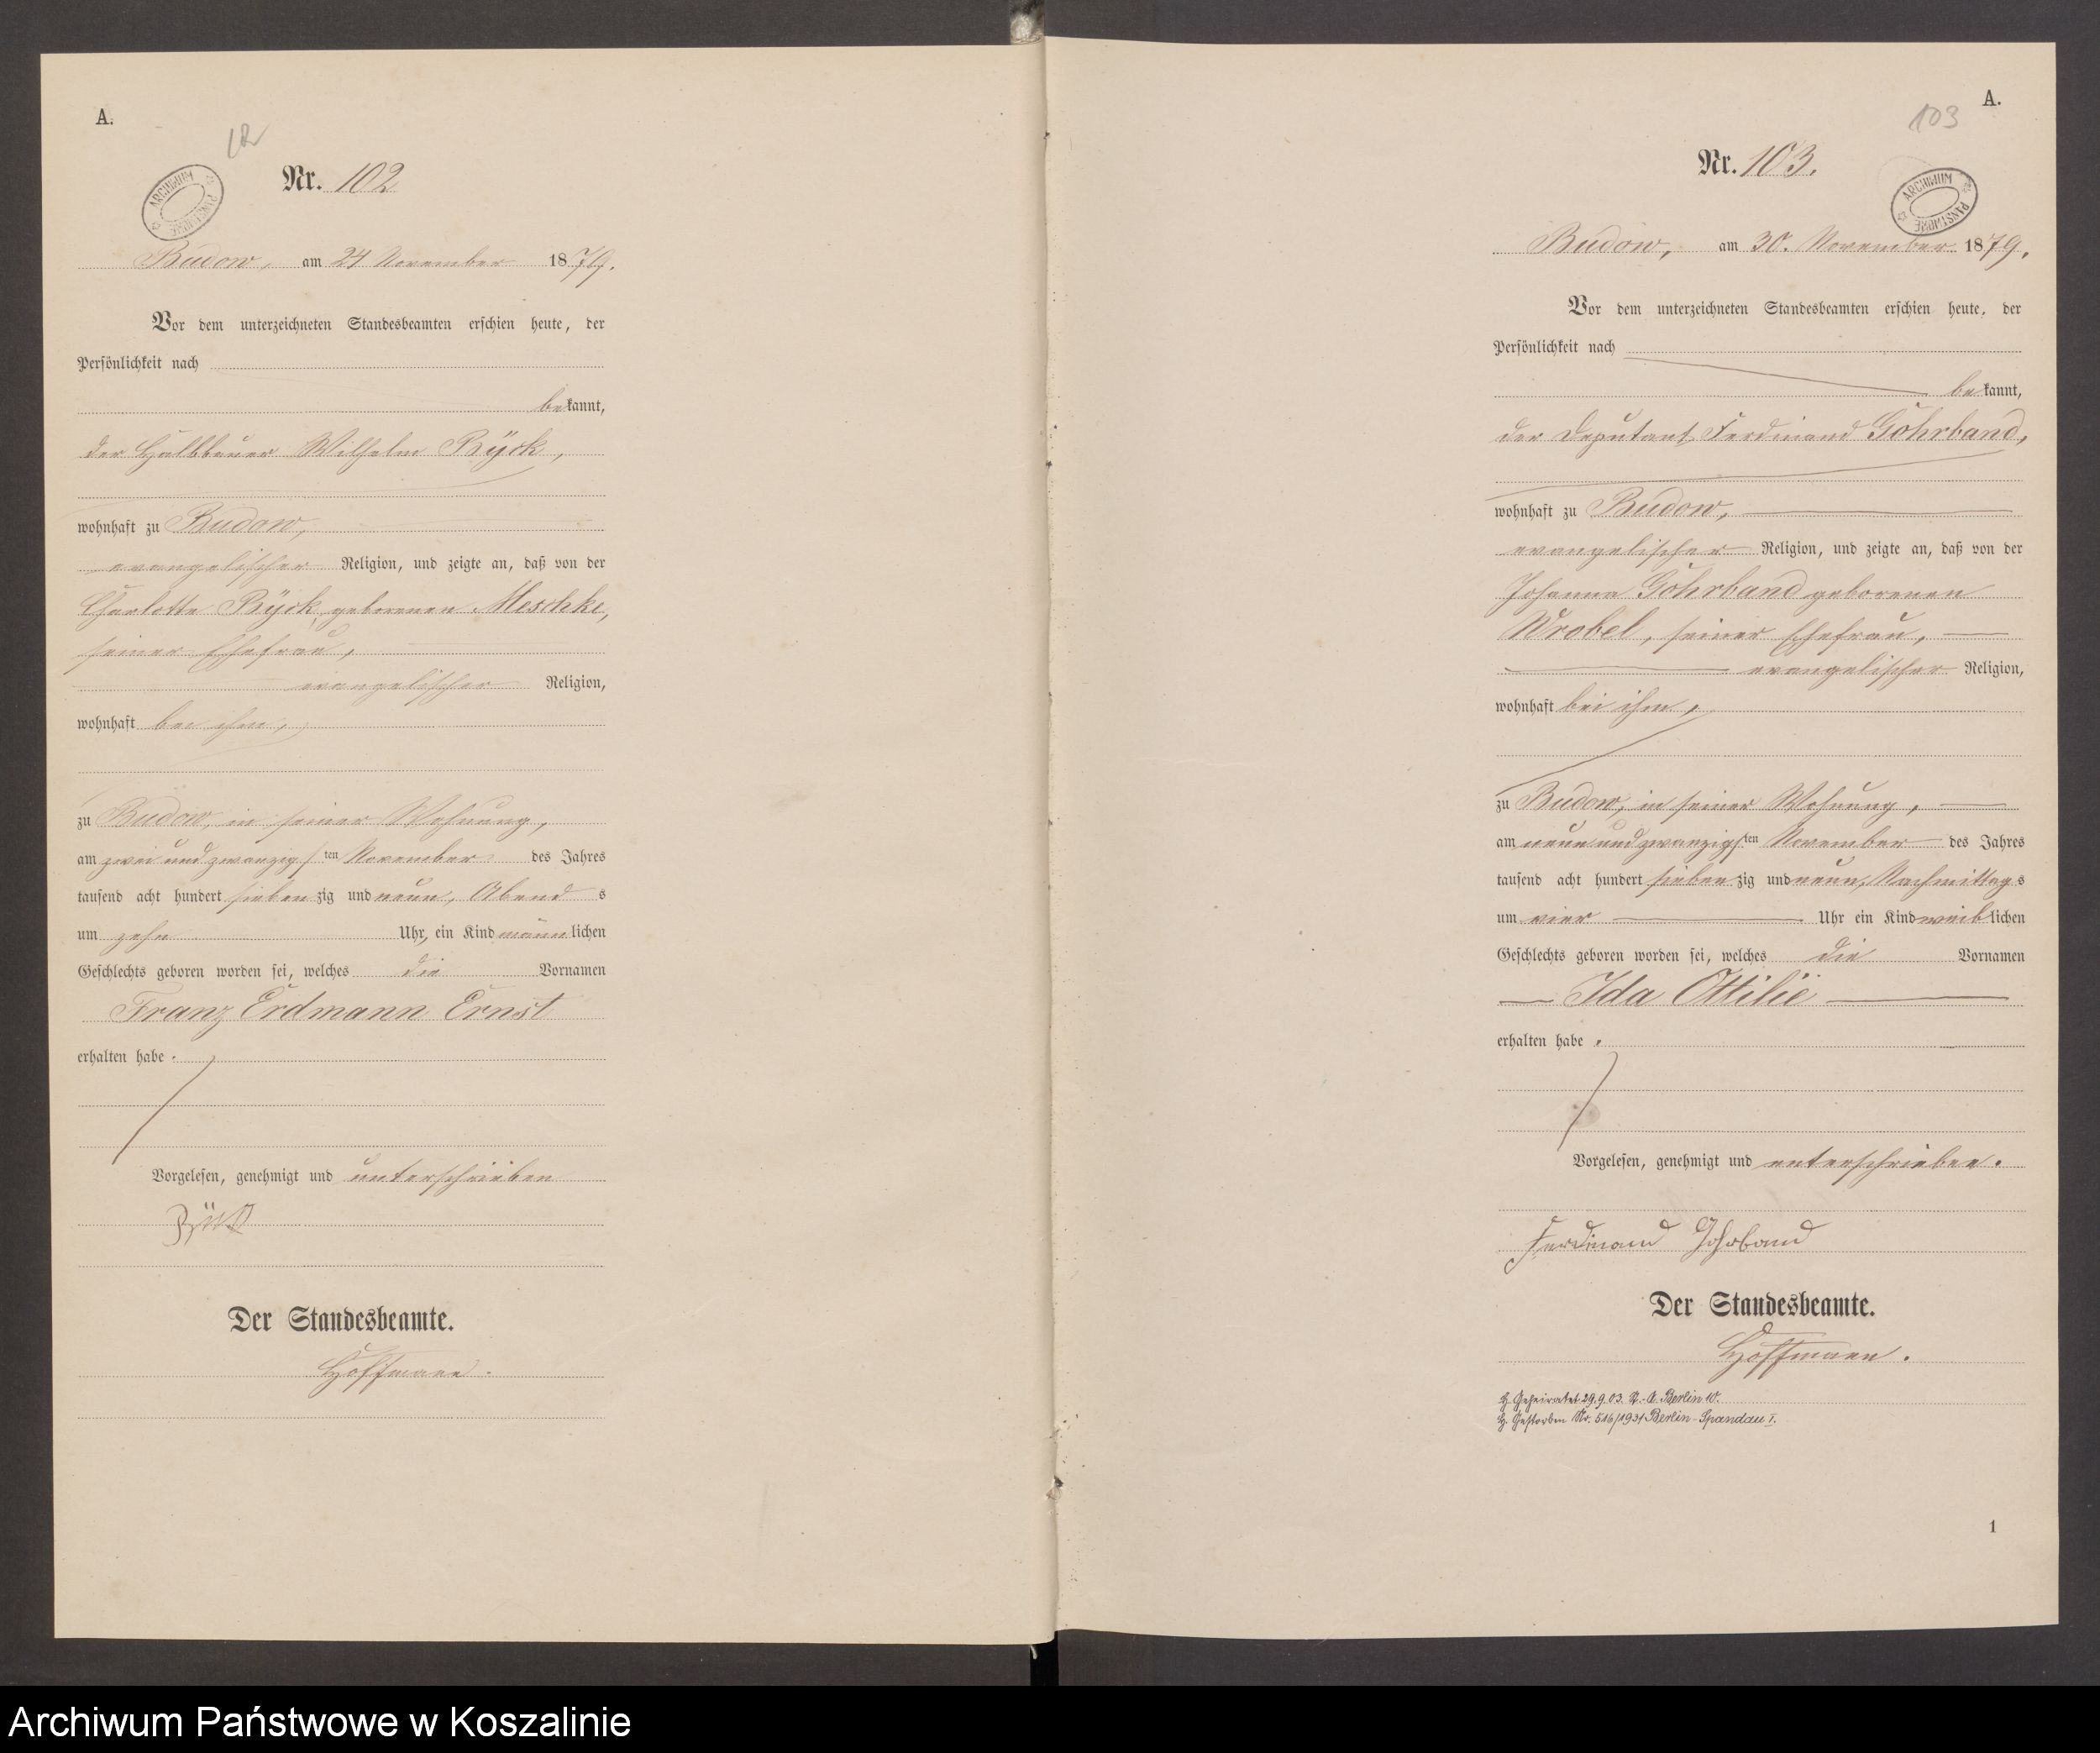 A.
102
Nr. 102
ARCHIWUM PAŃSTWOWE
Budow, am 24 November 1879.
Vor dem unterzeichneten Standesbeamten erschien heute, der
Persönlichkeit nach
bekannt,
der Halbbauer Wilhelm Rÿck,
wohnhaft zu Budow,
evangelischer Religion, und zeigte an, daß von der
Charlotte Rÿck, geborenen Meschke,
seiner Ehefrau,
evangelischer Religion,
wohnhaft bei ihm,
zu Budow, in seiner Wohnung,
am zwei und zwanzigsten November des Jahres
tausend acht hundert siebenzig und neun, Abends
um zehn Uhr, ein Kind männlichen
Geschlechts geboren worden sei, welches die Vornamen
Franz Erdmann Ernst
erhalten habe.
Vorgelesen, genehmigt und unterschrieben
Der Standesbeamte.
Hoffmann.
A.
103
Nr. 103.
ARCHIWUM PAŃSTWOWE
Budow, am 30. November 1879.
Vor dem unterzeichneten Standesbeamten erschien heute, der
Persönlichkeit nach
bekannt,
der Deputant Ferdinand Gohrband,
wohnhaft zu Budow,
evangelischer Religion, und zeigte an, daß von der
Johanna Gohrband geborenen
Wrobel, seiner Ehefrau,
evangelischer Religion,
wohnhaft bei ihm,
zu Budow, in seiner Wohnung,
am neun und zwanzigsten November des Jahres
tausend acht hundert siebenzig und neun, Nachmittags
um vier Uhr ein Kind weiblichen
Geschlechts geboren worden sei, welches die Vornamen
Ida Ottilie
erhalten habe.
Vorgelesen, genehmigt und unterschrieben.
Ferdinand Gohrband
Der Standesbeamte.
Hoffmann.
Geheiratet 29.9.03. St.-A. Berlin 10.
Gestorben Nr. 516/1931 Berlin-Spandau I.
1
Archiwum Państwowe w Koszalinie